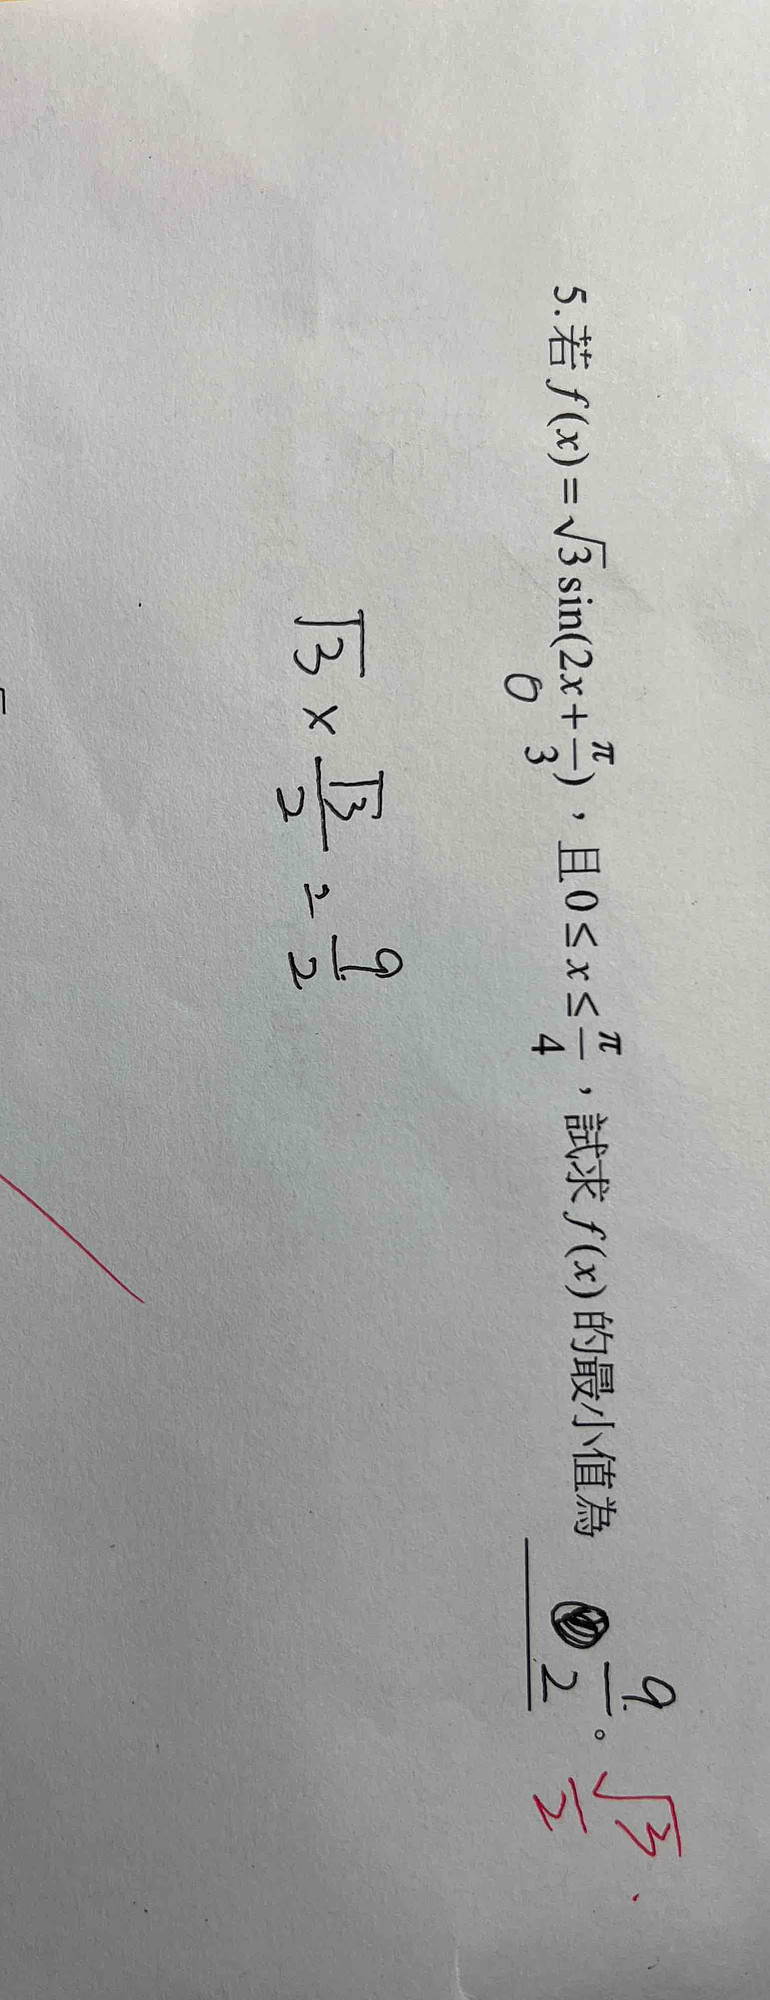 5.若 f(x)=√3 sin(2x+π/3)，且 0≤x≤π/4，試求 f(x) 的最小值為 9/2。 √3/2
0
√3 × √3/2 = 9/2